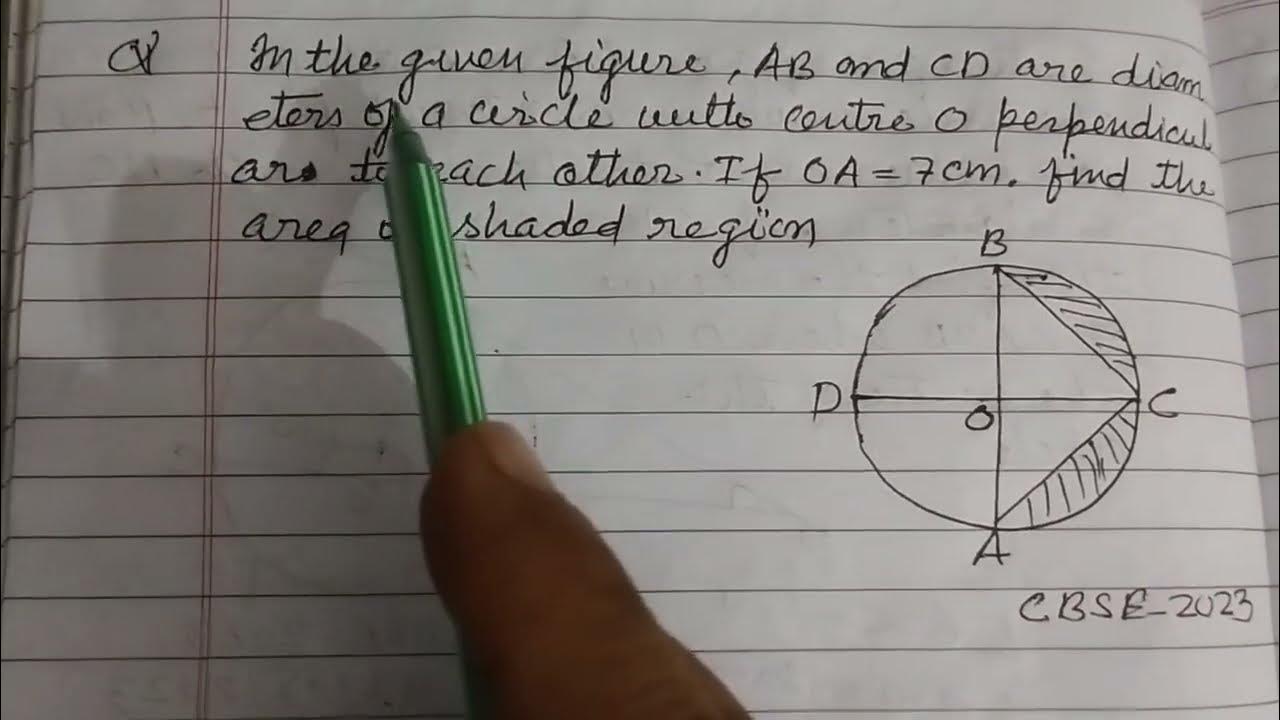 Q In the given figure, AB and CD are diam
eters of a circle with centre O perpendicul
ar to each other. If OA = 7cm. find the
area shaded region
B
D
O
C
A
CBSE-2023